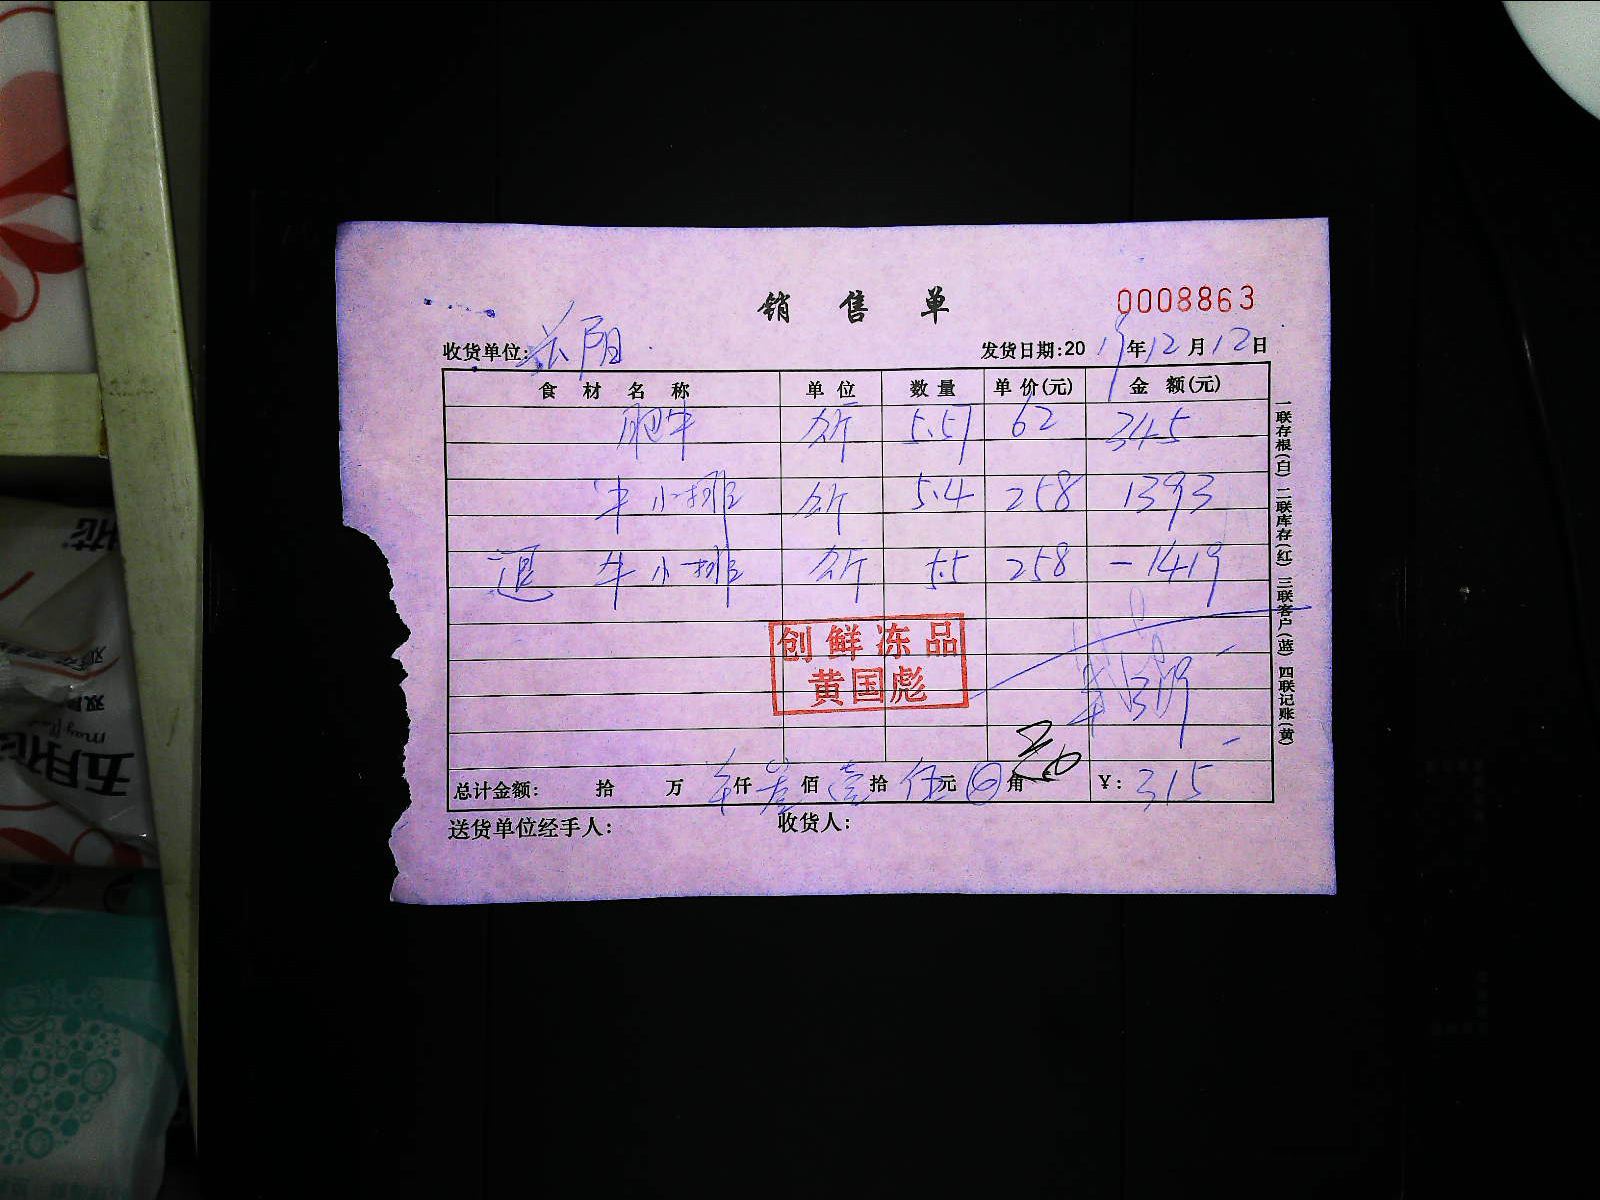 销售单
0008863
收货单位: 发货日期:2019年12月12日
食材名称 单位 数量 单价(元) 金额(元)
肥牛 公斤 5.57 62 345
牛小排 公斤 5.4 258 1393
退 牛小排 公斤 5.5 258 -1419
创鲜冻品
黄国彪
总计金额: 拾 万 仟叁佰壹拾伍元 角 ¥: 315
送货单位经手人: 收货人:
一联存根(白) 二联库存(红) 三联客户(蓝) 四联记账(黄)
五月花